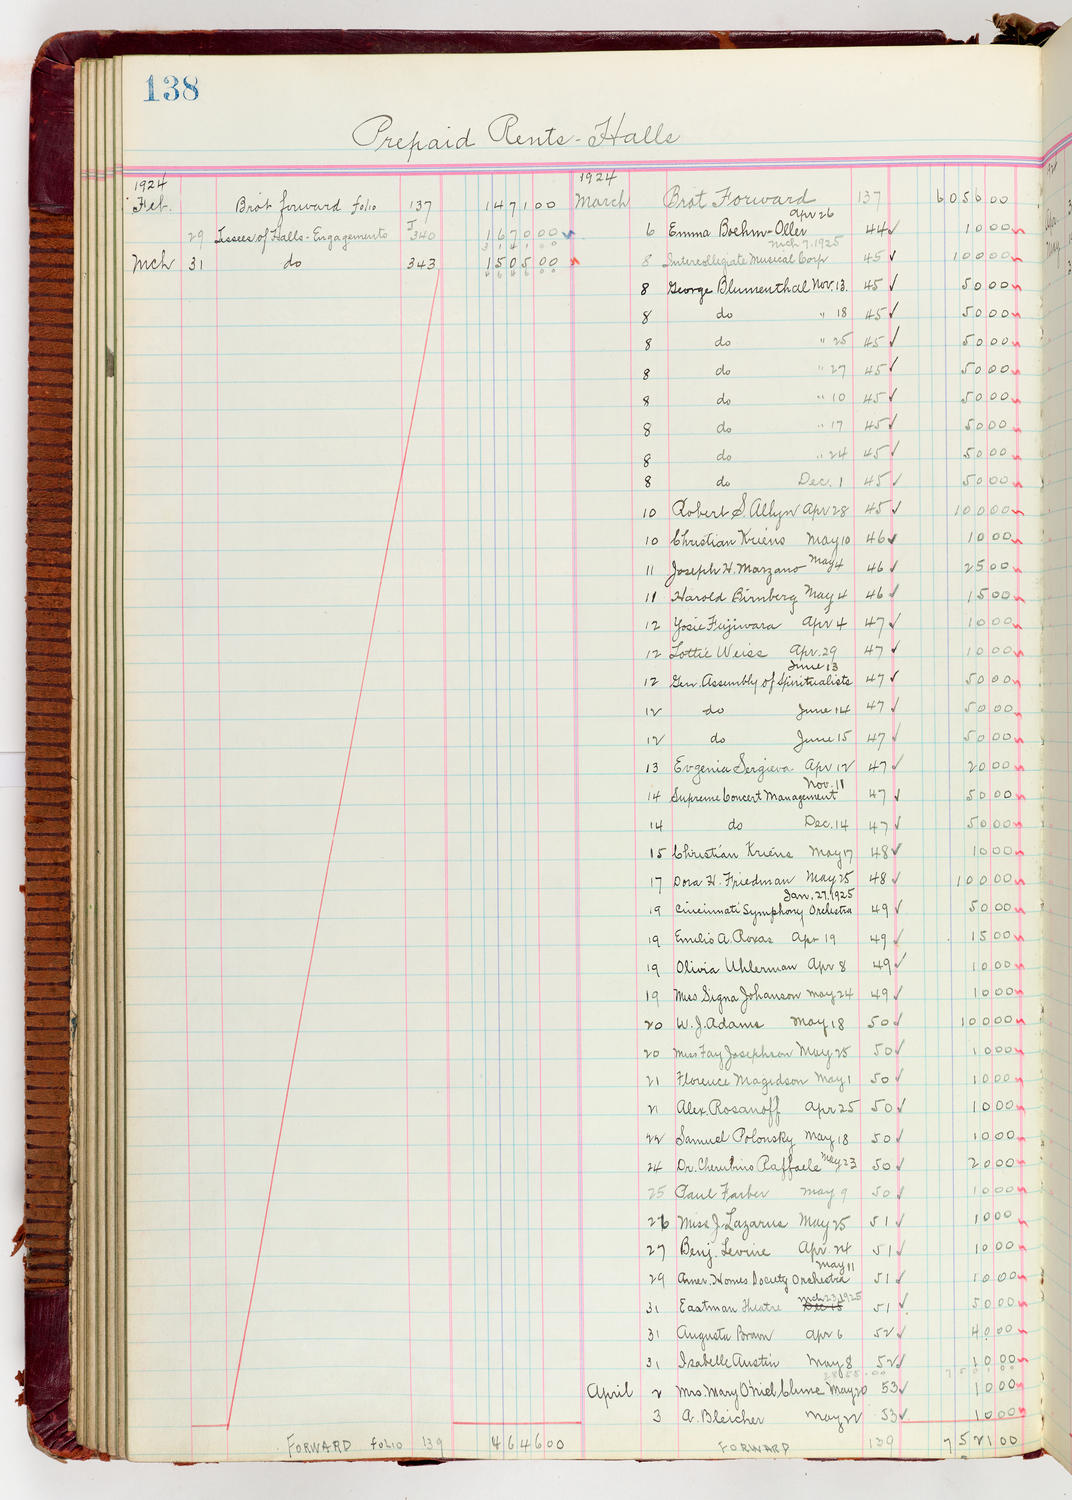 138
Prepaid Rents - Halls
1924
Feb. Brot forward folio 137 1471 00
29 Lessees of Halls - Engagements J 340 1670 00
3141 00
Mch 31 do 343 1505 00
4646 00
FORWARD folio 139 4646 00
1924
March Brot Forward 137 6056 00
Apr 26
6 Emma Boehm-Oller 44 ✓ 10 00
Mch 7, 1925
8 Intercollegiate Musical Corp 45 ✓ 100 00
8 George Blumenthal Nov. 13. 45 ✓ 50 00
8 do " 18 45 ✓ 50 00
8 do " 25 45 ✓ 50 00
8 do " 27 45 ✓ 50 00
8 do " 10 45 ✓ 50 00
8 do " 17 45 ✓ 50 00
8 do " 24 45 ✓ 50 00
8 do Dec. 1 45 ✓ 50 00
10 Robert S. Allyn Apr 28 45 ✓ 100 00
10 Christian Kriens May 10 46 ✓ 10 00
11 Joseph H. Marzano May 4 46 ✓ 25 00
11 Harold Birnberg May 4 46 ✓ 15 00
12 Yosie Fujiwara Apr 4 47 ✓ 10 00
12 Lottie Weiss Apr. 29 47 ✓ 10 00
June 13
12 Gen. Assembly of Spiritualists 47 ✓ 50 00
12 do June 14 47 ✓ 50 00
12 do June 15 47 ✓ 50 00
13 Evgenia Sergieva Apr 12 47 ✓ 20 00
Nov. 11
14 Supreme Concert Management 47 ✓ 50 00
14 do Dec. 14 47 ✓ 50 00
15 Christian Kriens May 17 48 ✓ 10 00
17 Dora H. Friedman May 25 48 ✓ 100 00
Jan. 27, 1925
19 Cincinnati Symphony Orchestra 49 ✓ 50 00
19 Emilio A. Roxas Apr 19 49 ✓ 15 00
19 Olivia Uhlerman Apr 8 49 ✓ 10 00
19 Miss Signa Johanson May 24 49 ✓ 10 00
20 W. J. Adams May 18 50 ✓ 100 00
20 Miss Fay Josephson May 25 50 ✓ 10 00
21 Florence Magidson May 1 50 ✓ 10 00
21 Alex. Rosanoff Apr 25 50 ✓ 10 00
22 Samuel Polonsky May 18 50 ✓ 10 00
24 Dr. Cherubino Raffaele May 23 50 ✓ 20 00
25 Paul Farber May 9 50 ✓ 10 00
26 Miss J. Lazarus May 25 51 ✓ 10 00
27 Benj. Levine Apr. 24 51 ✓ 10 00
May 11
29 Amer. Homes Society Orchestra 51 ✓ 10 00
Mch 23, 1925
31 Eastman Theatre Dec 15 51 ✓ 50 00
31 Augusta Brown Apr 6 52 ✓ 40 00
31 Isabelle Austin May 8 52 ✓ 10 00
2855.00 7501 00
April 2 Mrs Mary O'niel Clune May 20 53 ✓ 10 00
3 A. Bleicher May 22 53 ✓ 10 00
FORWARD 139 7521 00